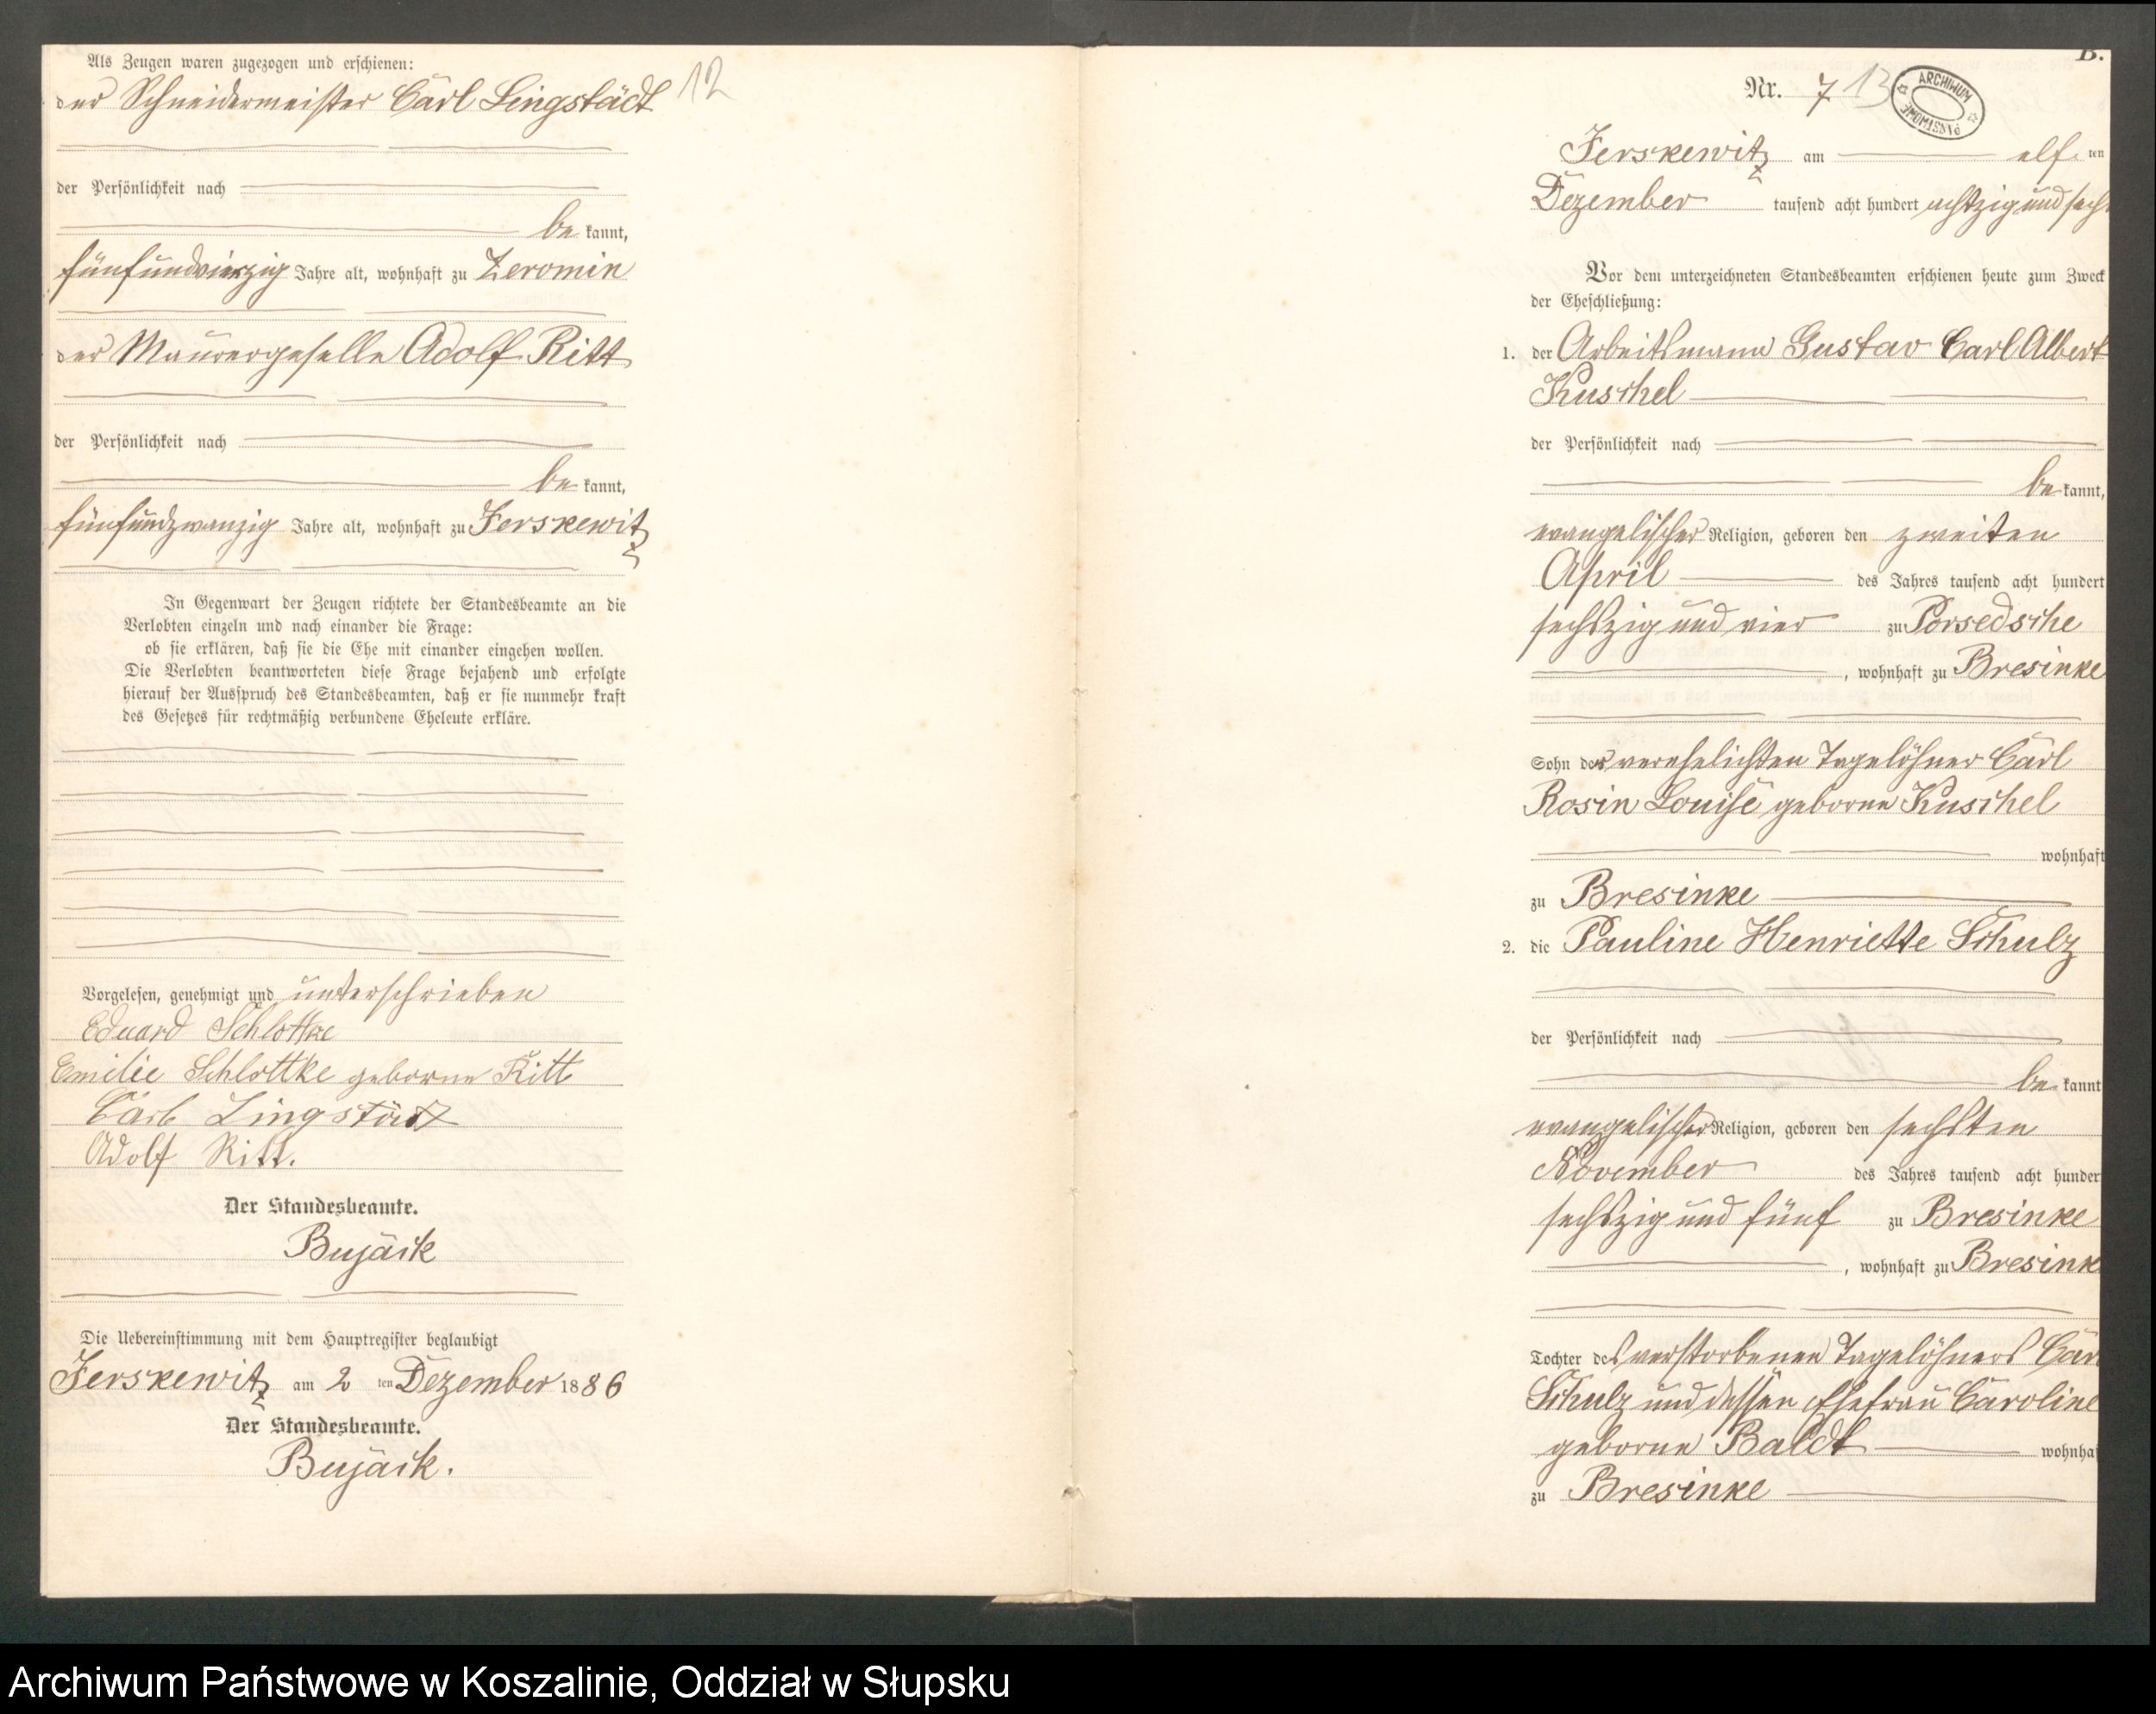 Als Zeugen waren zugezogen und erschienen:
der Schneidermeister Carl Lingstädt
12
der Persönlichkeit nach
be kannt,
fünfundvierzig Jahre alt, wohnhaft zu Zeromin
der Maurergeselle Adolf Ritt
der Persönlichkeit nach
be kannt,
fünfundzwanzig Jahre alt, wohnhaft zu Jerskewitz
In Gegenwart der Zeugen richtete der Standesbeamte an die
Verlobten einzeln und nach einander die Frage:
ob sie erklären, daß sie die Ehe mit einander eingehen wollen.
Die Verlobten beantworteten diese Frage bejahend und erfolgte
hierauf der Ausspruch des Standesbeamten, daß er sie nunmehr kraft
des Gesetzes für rechtmäßig verbundene Eheleute erkläre.
Vorgelesen, genehmigt und unterschrieben
Eduard Schlottke
Emilie Schlottke geborne Ritt
Carl Lingstädt
Adolf Ritt.
Der Standesbeamte.
Bujäck
Die Uebereinstimmung mit dem Hauptregister beglaubigt
Jerskewitz am 2 ten Dezember 1886
Der Standesbeamte.
Bujäck.
B.
Nr. 7
13
ARCHIWUM PAŃSTWOWE
Jerskewitz am elf ten
Dezember tausend acht hundert achtzig und sechs
Vor dem unterzeichneten Standesbeamten erschienen heute zum Zweck
der Eheschließung:
1. der Arbeitsmann Gustav Carl Albert
Kuschel
der Persönlichkeit nach
be kannt,
evangelischer Religion, geboren den zweiten
April des Jahres tausend acht hundert
sechszig und vier zu Porsedsche
, wohnhaft zu Bresinke
Sohn der verehelichten Tagelöhner Carl
Rosin Louise geborne Kuschel
wohnhaft
zu Bresinke
2. die Pauline Henriette Schulz
der Persönlichkeit nach
be kannt
evangelischer Religion, geboren den sechsten
November des Jahres tausend acht hunder
sechszig und fünf zu Bresinke
, wohnhaft zu Bresink
Tochter des verstorbenen Tagelöhners Car
Schulz und dessen Ehefrau Caroline
geborne Baldt wohnha
zu Bresinke
Archiwum Państwowe w Koszalinie, Oddział w Słupsku